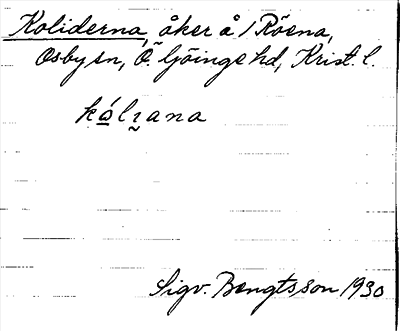 Koliderna, åker å 1 Röena,
Osby sn, Ö. Göinge hd, Krist. l.
kó̲lɿ̰ana
Sigv. Bengtsson 1930